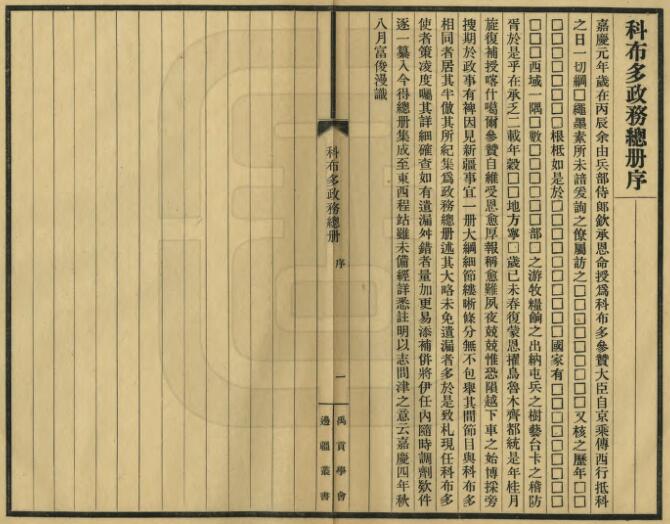 科布多政務總册序
嘉慶元年歲在丙辰余由兵部侍郎欽承恩命授爲科布多參贊大臣自京乘傳西行抵科
之日一切綱□繩墨素所未諳爰詢之僚屬訪之□□□□□□□□又核之歷年□□
□□□□□□□根柢如是於□□□□□□□□□□□國家有□□□□□□□□
□□□□西域一隅□數□□□□□□部□之游牧糧餉之出納屯兵之樹藝台卡之稽防
胥於是乎在承乏二載年穀□□地方寧□歲己未春復蒙恩擢烏魯木齊都統是年桂月
旋復補授喀什噶爾參贊自維受恩愈厚報稱愈難夙夜兢兢惟恐隕越下車之始博採旁
搜期於政事有裨因見新疆事宜一册大綱細節縷晰條分無不包舉其間節目與科布多
相同者居其半倣其所紀集爲政務總册述其大略未免遺漏者多於是致札現任科布多
使者策凌度囑其詳細確查如有遺漏舛錯者量加更易添補併將伊任內隨時調劑欵件
逐一纂入今得總册集成至東西程站雖未備經詳悉註明以志問津之意云嘉慶四年秋
八月富俊漫識
科布多政務總册
序
一
禹貢學會
邊疆叢書